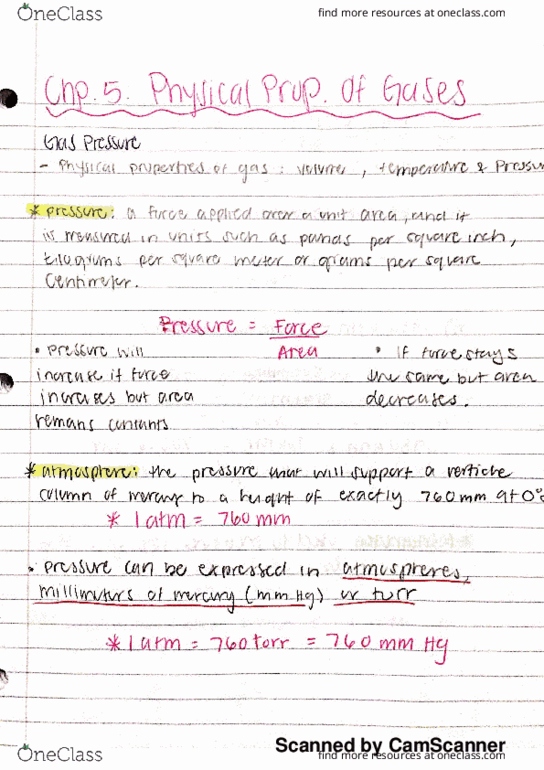 OneClass
find more resources at oneclass.com
Chp. 5. Physical Prop. Of Gases
Gas Pressure
- Physical properties of gas : volume, temperature & Pressu
* pressure: a force applied over a unit area, and it
is measured in units such as pounds per square inch,
kilograms per square meter or grams per square
centimeter.
Pressure = Force
Area
• pressure will
increase if force
increases but area
remans constants
• If force stays
the same but area
decreases.
* atmosphere: the pressure that will support a verticle
column of mercury to a height of exactly 760 mm at 0°
* 1 atm = 760 mm
• pressure can be expressed in atmospheres,
millimeters of mercury (mm Hg) or torr
* 1 atm = 760 torr = 760 mm Hg
Scanned by CamScanner
OneClass
find more resources at oneclass.com